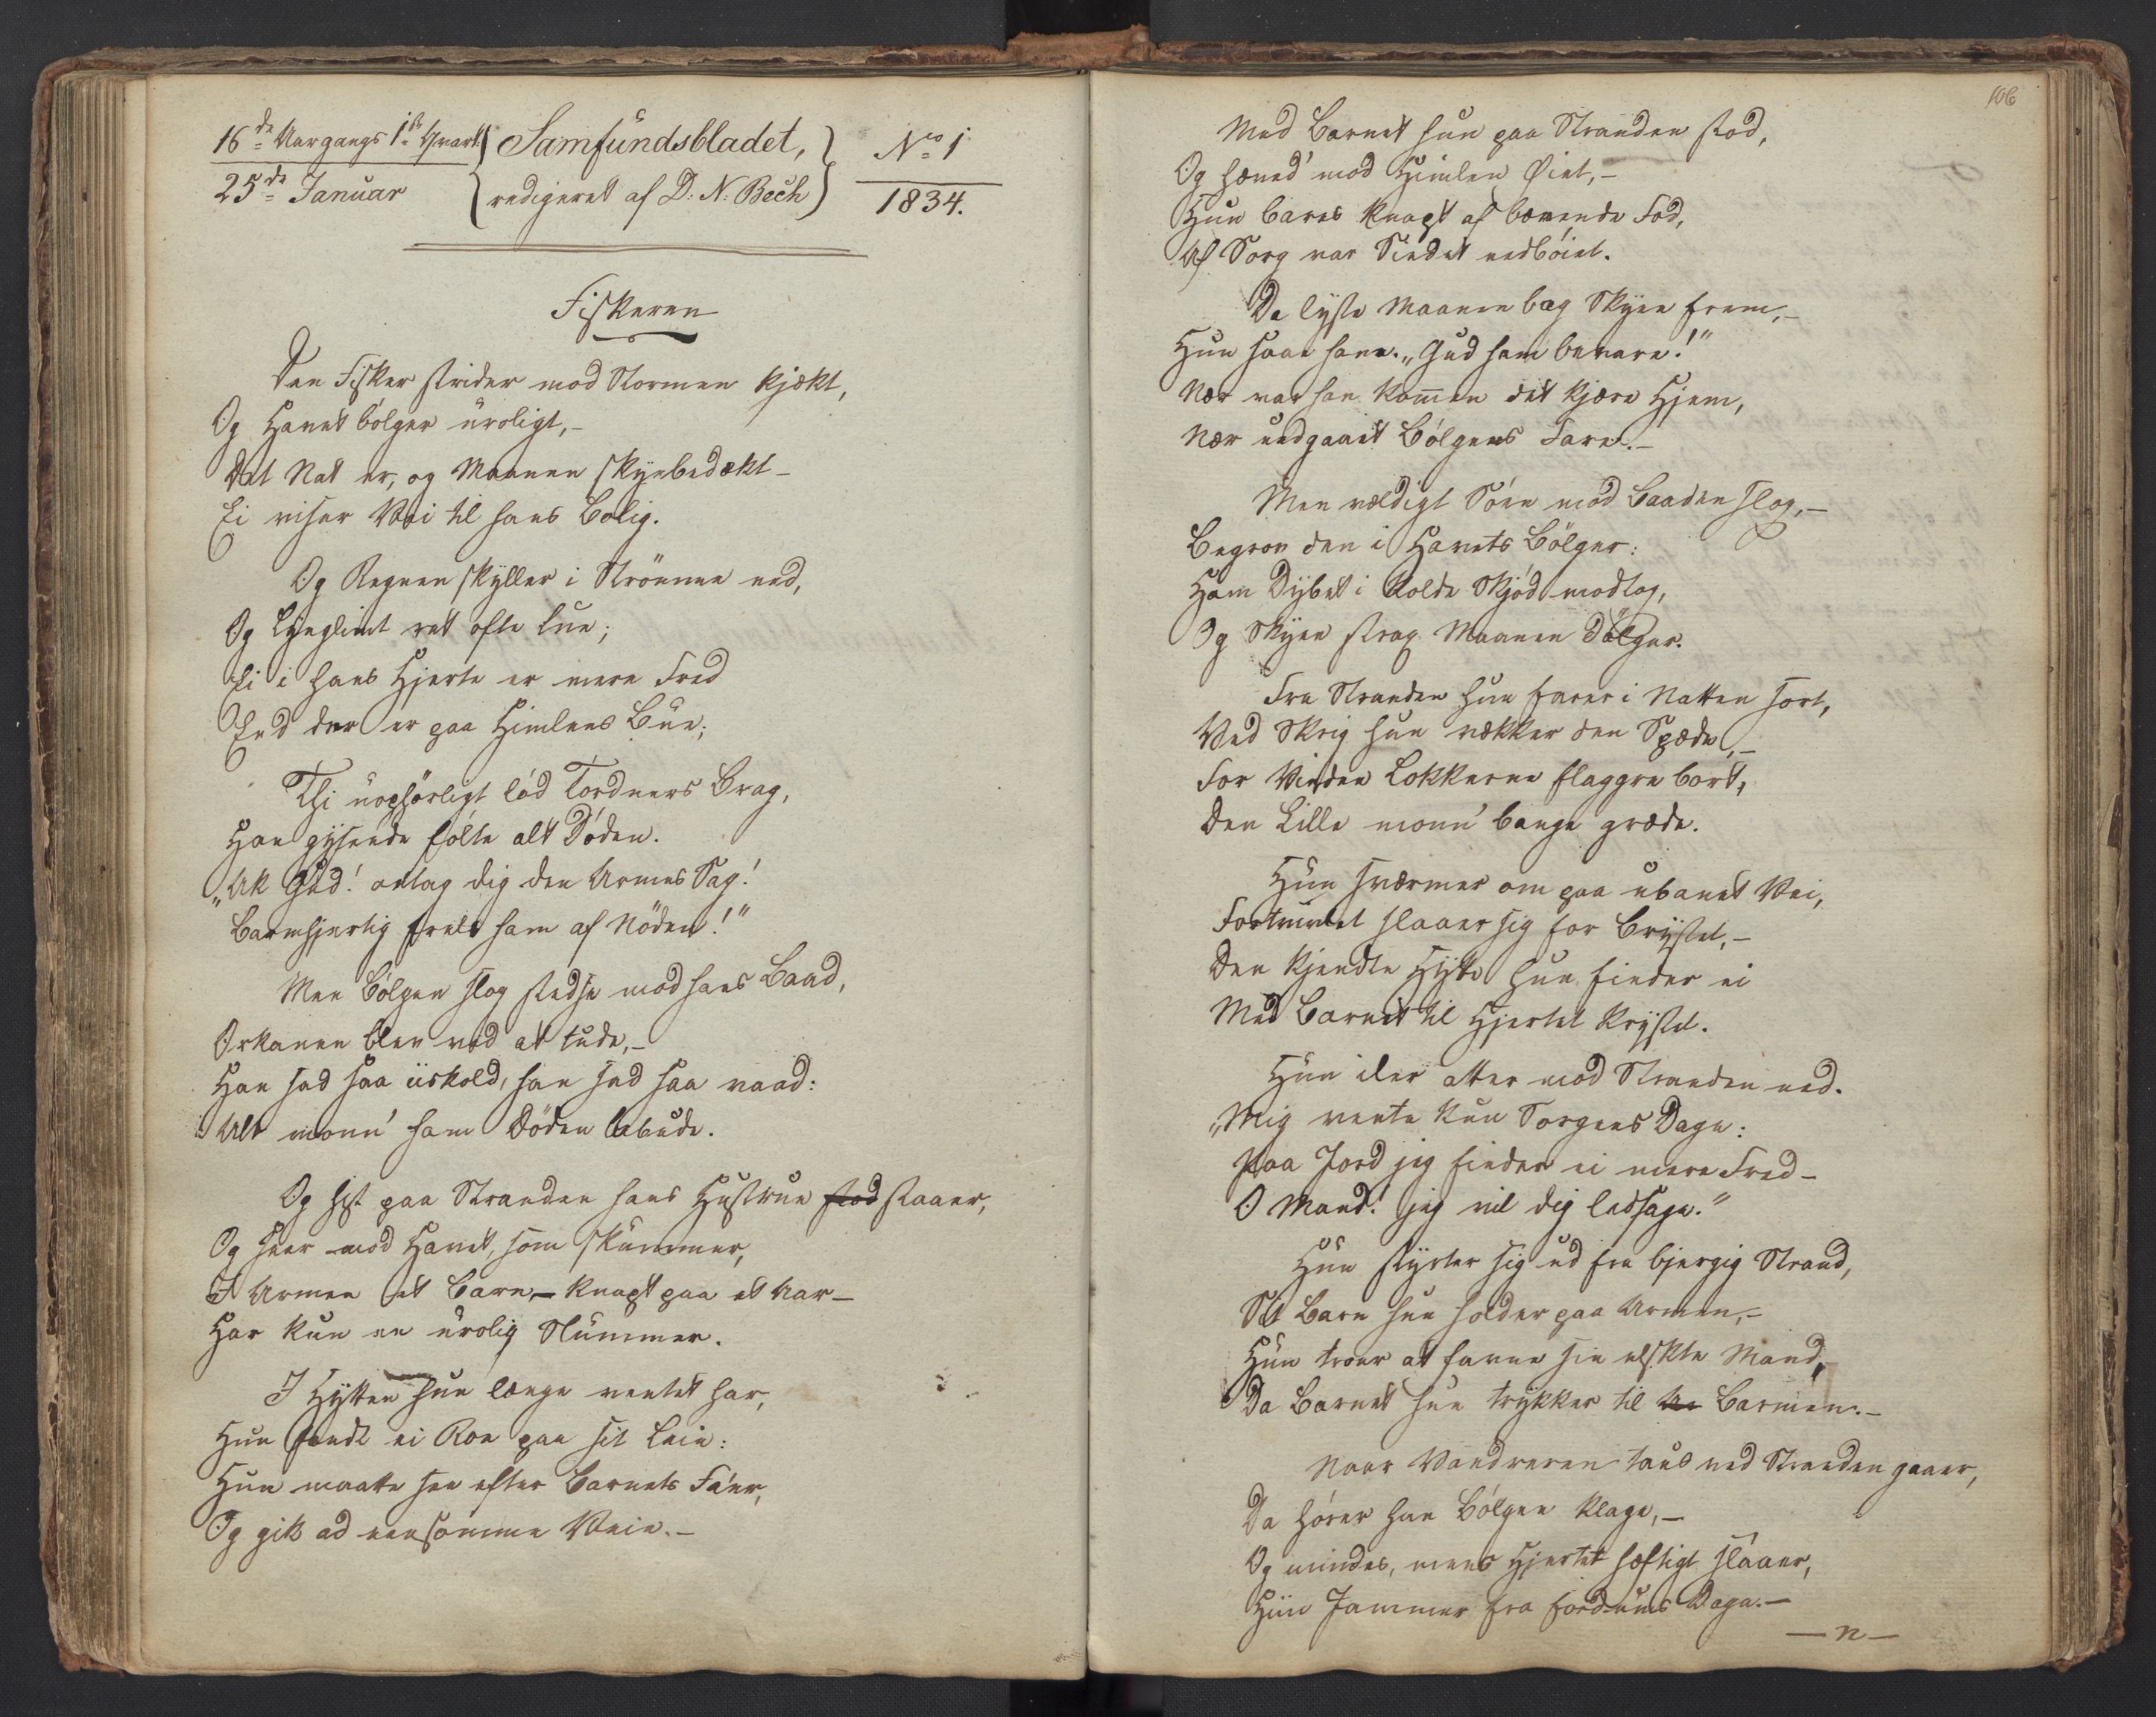 16de Aargangs 1ste Qvart.
25de Januar
Samfundsbladet,
redigeret af D: N: Bech
No 1
1834.
Fiskeren
Den Fisker strider mod Stormen kjækt,
Og Havet bølger uroligt,–
Det Nat er, og Maanen skyebedækt–
Ei viser Vei til hans Bolig.
Og Regnen skyller i Strømme ned,
Og Lynglimt ret ofte lue;
Ei i hans Hjerte er mere Fred
End der er paa Himlens Bue;
Thi uophørligt lød Tordners Brag,
Han gysende følte alt Døden.
„Ak Gud! antag dig den Armes Sag!
Barmhjertig frels ham af Nøden!"
Men Bølgen slog stedse mod hans Baad,
Orkanen blev ved at tude,–
Han sad saa iiskold, han sad saa vaad:
Alt monn' ham Døden bebude.
Og hist paa Stranden hans Hustrue stod staaer,
Og seer mod Havet, som skummer,
I Armen et Barn – knapt paa et Aar–
Har kun en urolig Slummer.
I Hytten hun længe ventet har,
Hun fandt ei Roe paa sit Leie:
Hun maatte see efter Barnets Fa'er,
Og gik ad eensomme Veie.–
106
Med Barnet hun paa Stranden stod,
Og hæved' mod Himlen Øiet,–
Hun bares knapt af bævende Fod,
Af Sorg var Sindet nedbøiet.
Da lyste Maanen bag Skyen frem,–
Hun saae ham. „Gud ham bevare!"
Nær var han kommen det kjære Hjem,
Nær undgaaet Bølgens Fare.–
Men vældigt Søen mod Baaden slog,–
Begrov den i Havets Bølger:
Ham Dybet i kolde Skjød modtog,
Og Skyen strax Maanen dølger.
Fra Stranden hun farer i Natten sort,
Ved Skrig hun vækker den Spæde,–
For Vinden Lokkerne flaggre bort,
Den Lille monn' bange græde.
Hun sværmer om paa ubanet Vei,
Fortvivlet slaaer sig for Brystet,–
Den kjendte Hytte hun finder ei
Med Barnet til Hjertet krystet.
Hun iler atter mod Stranden ned.
„Mig vente kun Sorgens Dage:
Paa Jord jeg finder ei mere Fred–
O Mand! jeg vil dig ledsage."
Hun styrter sig ud fra bjergig Strand,
Sit Barn hun holder paa Armen,–
Hun troer at favne sin elskte Mand,
Da Barnet hun trykker til Barmen.–
Naar Vandreren taus ved Stranden gaaer,
Da hører han Bølgen klage,–
Og mindes, mens Hjertet hæftigt slaaer,
Hiin Jammer fra fordums Dage.–
– n –